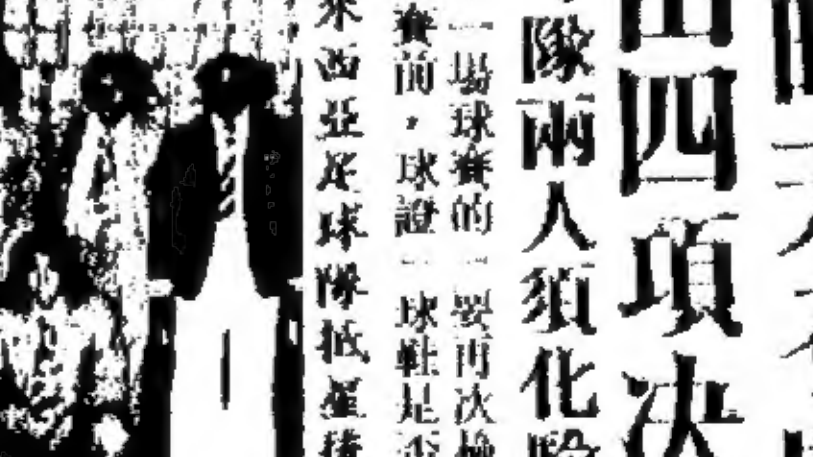 四項決
隊兩人須化驗
一場球賽的 要再次檢
賽前，球證 球鞋是否
來西亞足球隊抵星後